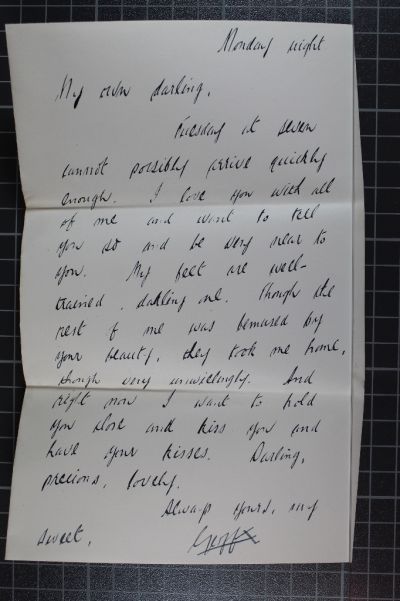 Monday night
My own darling,
Tuesday at seven
cannot possibly arrive quickly
enough. I love you with all
of me and want to tell
you so and be very near to
you. My feet are well-
trained, darling one. Though the
rest of me was bemused by
your beauty, they took me home,
though very unwillingly. And
right now I want to hold
you close and kiss you and
have your kisses. Darling,
precious, lovely.
Always yours, my
sweet,